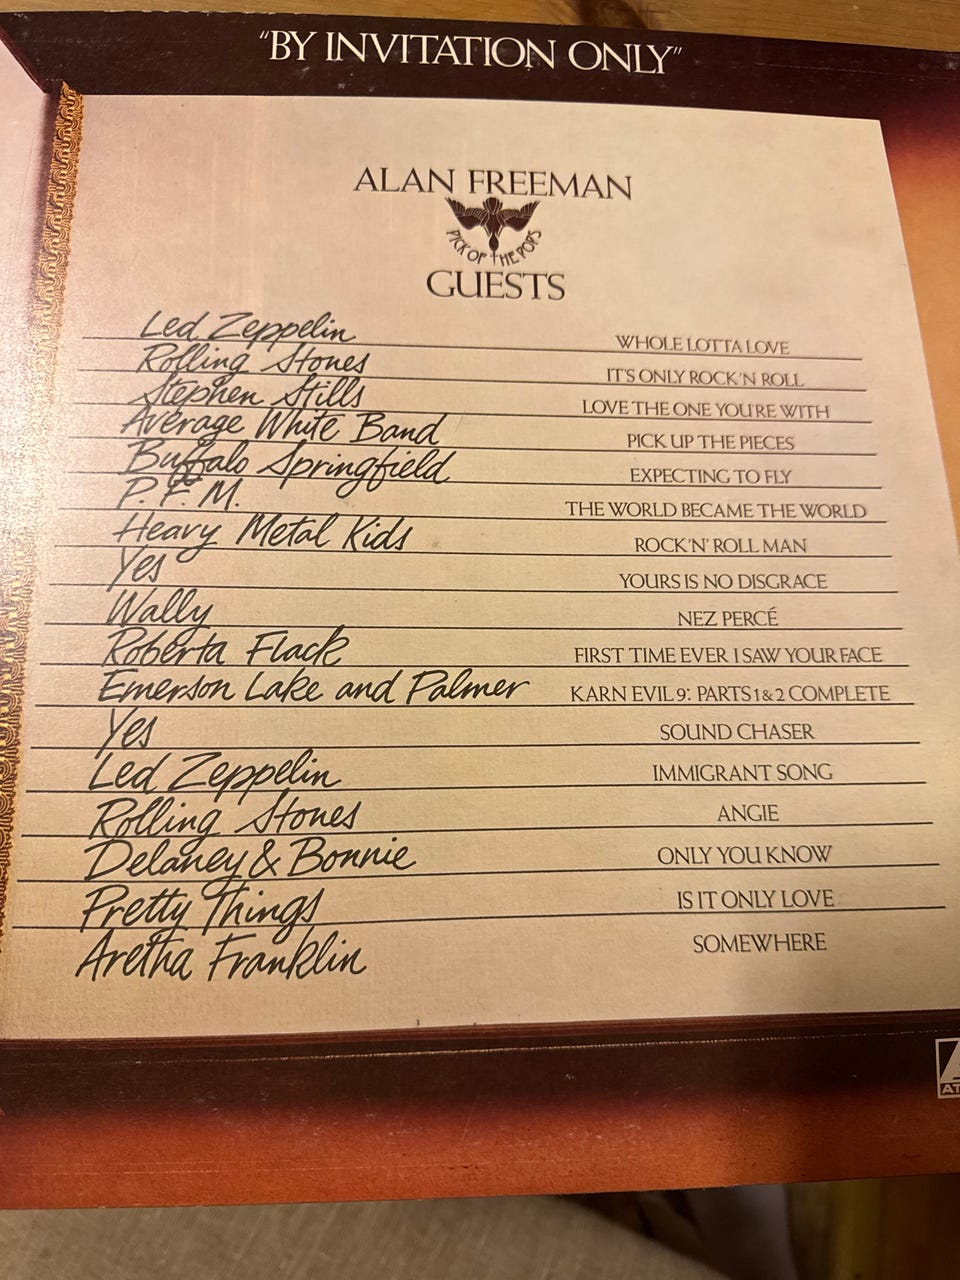 "BY INVITATION ONLY"
ALAN FREEMAN
PICK OF THE POPS
GUESTS
Led Zeppelin WHOLE LOTTA LOVE
Rolling Stones IT'S ONLY ROCK 'N ROLL
Stephen Stills LOVE THE ONE YOU'RE WITH
Average White Band PICK UP THE PIECES
Buffalo Springfield EXPECTING TO FLY
P.F.M. THE WORLD BECAME THE WORLD
Heavy Metal Kids ROCK 'N' ROLL MAN
Yes YOURS IS NO DISGRACE
Wally NEZ PERCÉ
Roberta Flack FIRST TIME EVER I SAW YOUR FACE
Emerson Lake and Palmer KARN EVIL 9: PARTS 1 & 2 COMPLETE
Yes SOUND CHASER
Led Zeppelin IMMIGRANT SONG
Rolling Stones ANGIE
Delaney & Bonnie ONLY YOU KNOW
Pretty Things IS IT ONLY LOVE
Aretha Franklin SOMEWHERE